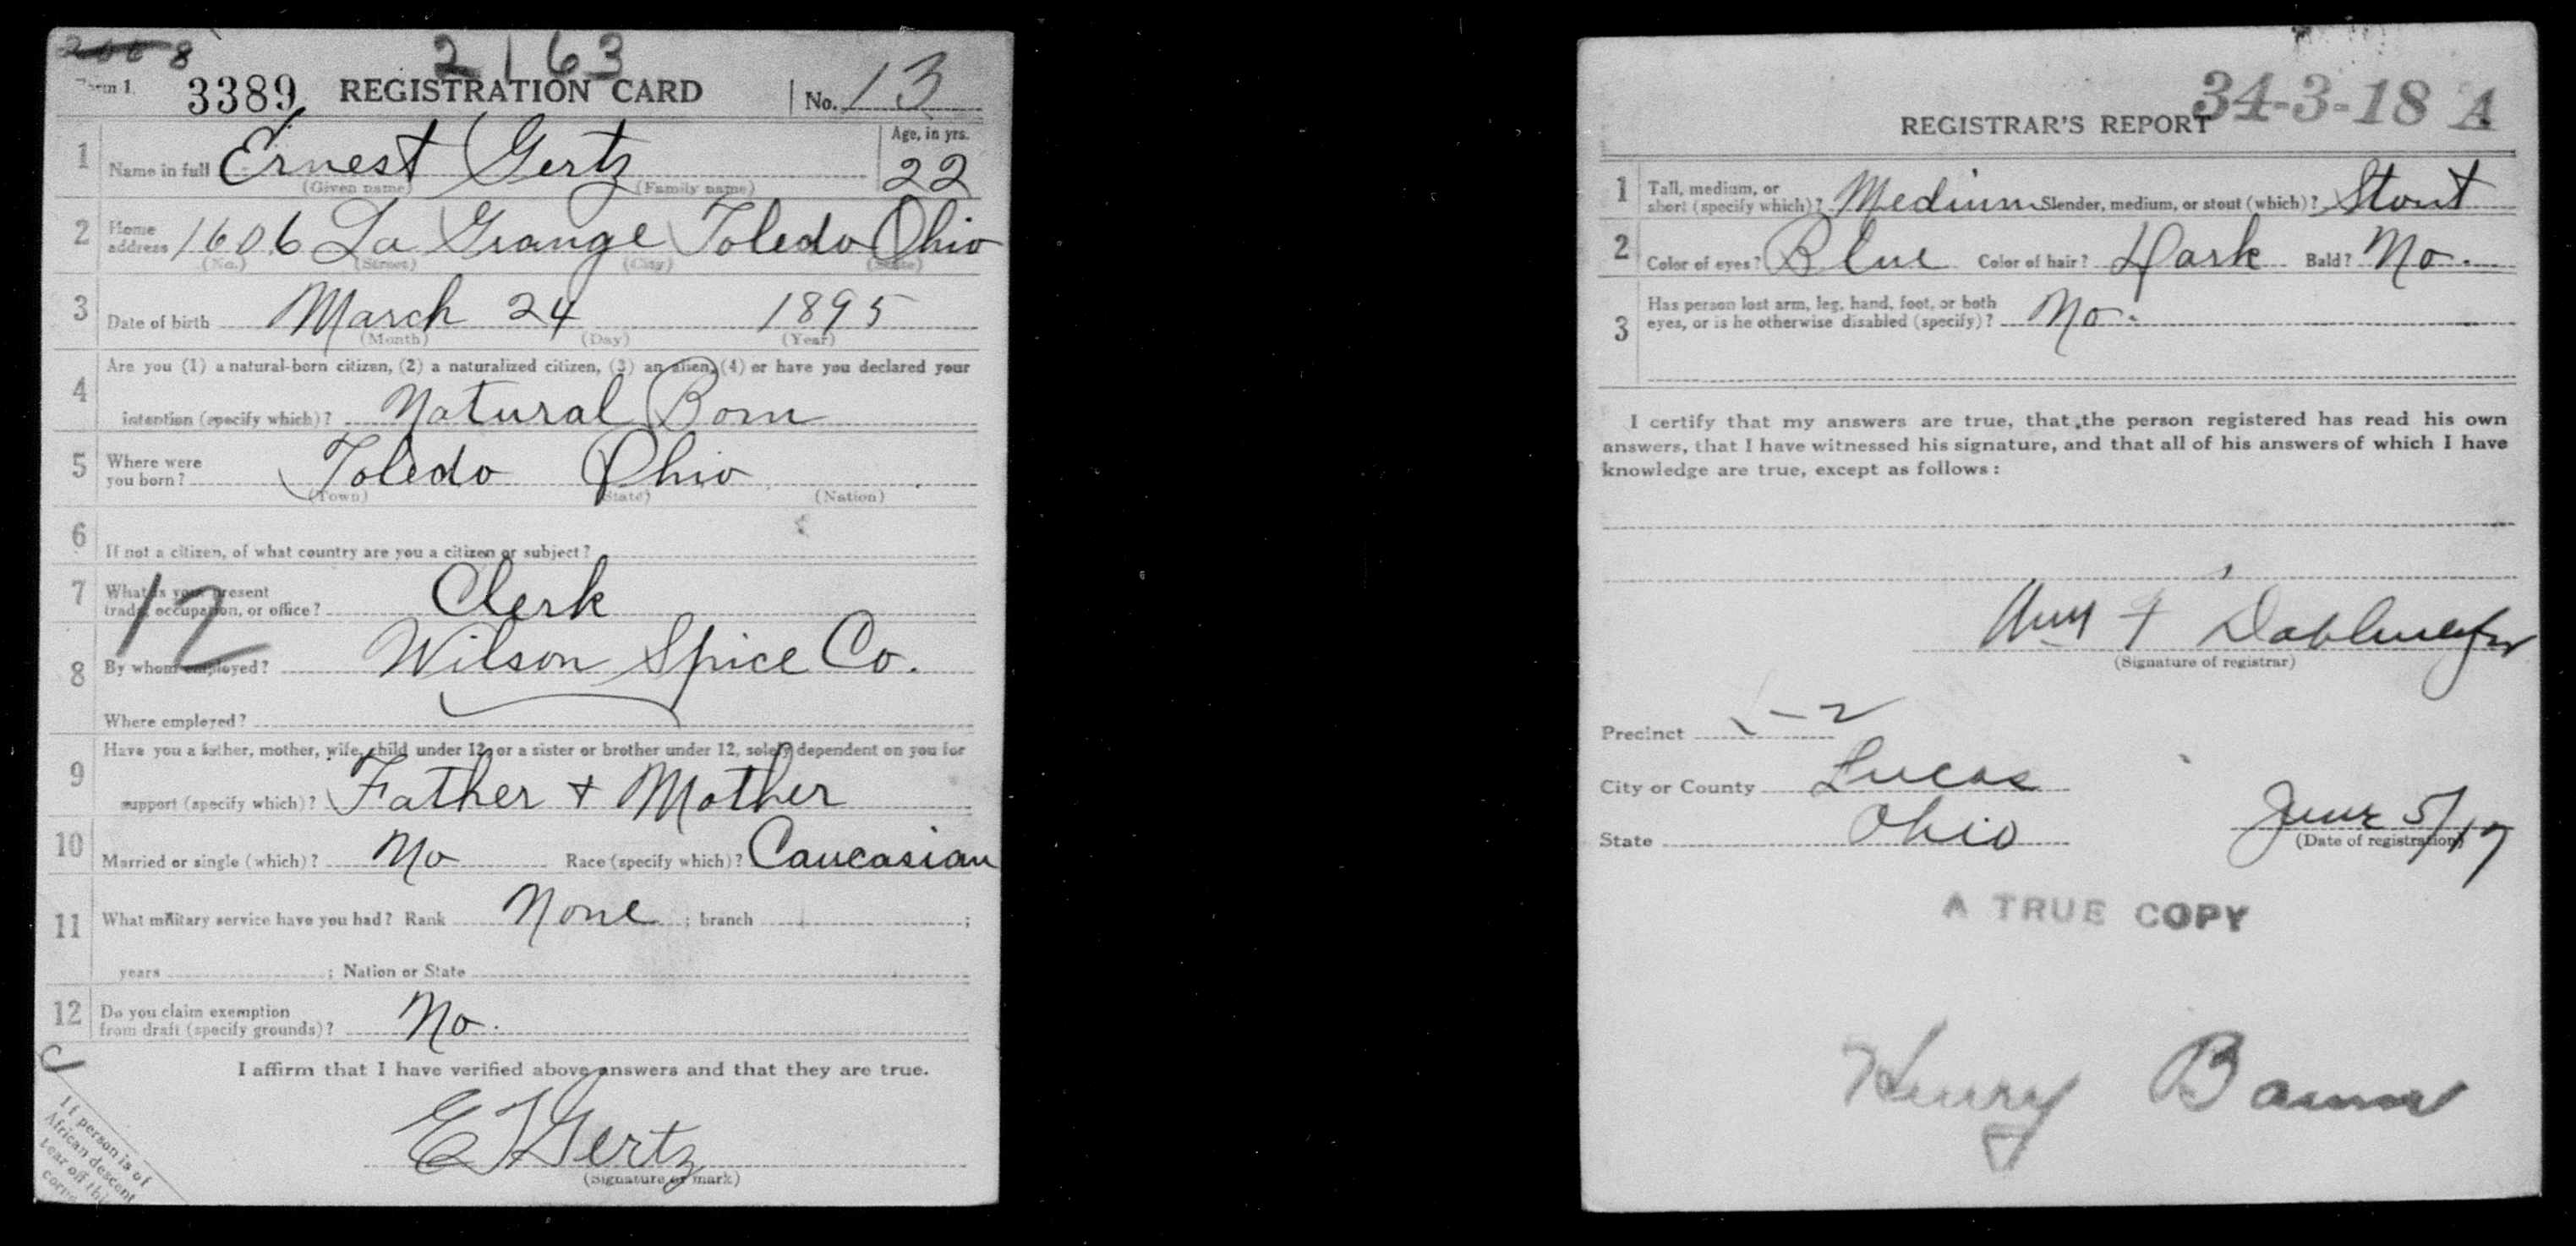 2163
Form 1 3389 REGISTRATION CARD No. 13
1 Name in full Ernest Gertz Age, in yrs. 22
(Given name) (Family name)
2 Home address 1606 La Grange Toledo Ohio
(No.) (Street) (City) (State)
3 Date of birth March 24 1895
(Month) (Day) (Year)
4 Are you (1) a natural-born citizen, (2) a naturalized citizen, (3) an alien, (4) or have you declared your
intention (specify which)? Natural Born
5 Where were you born? Toledo Ohio
(Town) (State) (Nation)
6 If not a citizen, of what country are you a citizen or subject?
7 What is your present trade, occupation, or office? Clerk
12
8 By whom employed? Wilson Spice Co.
Where employed?
9 Have you a father, mother, wife, child under 12, or a sister or brother under 12, solely dependent on you for
support (specify which)? Father + Mother
10 Married or single (which)? No Race (specify which)? Caucasian
11 What military service have you had? Rank None ; branch ;
years ; Nation or State
12 Do you claim exemption from draft (specify grounds)? No.
I affirm that I have verified above answers and that they are true.
E J Gertz
(Signature or mark)
If person is of
African descent
tear off this
corner
34-3-18 A
REGISTRAR'S REPORT
1 Tall, medium, or short (specify which)? Medium Slender, medium, or stout (which)? Stout
2 Color of eyes? Blue Color of hair? Dark Bald? No.
3 Has person lost arm, leg, hand, foot, or both
eyes, or is he otherwise disabled (specify)? No.
I certify that my answers are true, that the person registered has read his own
answers, that I have witnessed his signature, and that all of his answers of which I have
knowledge are true, except as follows:
Wm F
(Signature of registrar)
Precinct
City or County Lucas
State Ohio June 5/17
(Date of registration)
A TRUE COPY
Henry